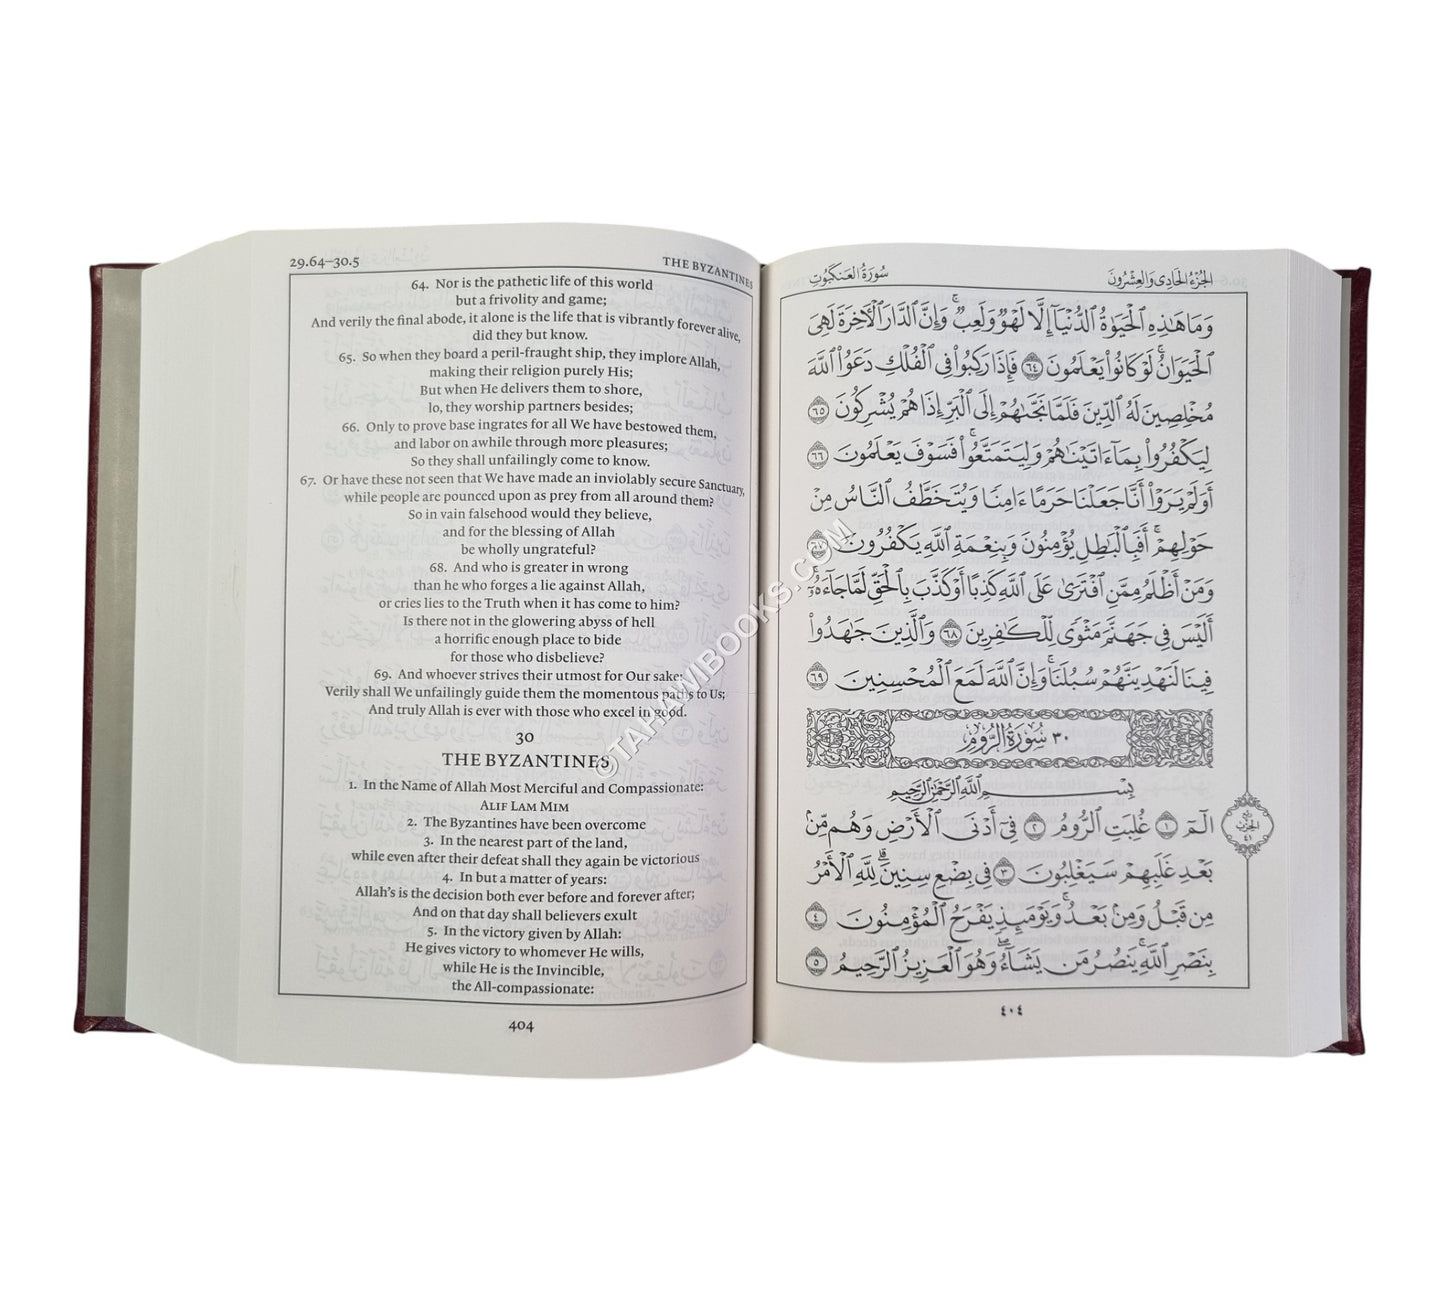 29.64–30.5
THE BYZANTINES
64. Nor is the pathetic life of this world
but a frivolity and game;
And verily the final abode, it alone is the life that is vibrantly forever alive,
did they but know.
65. So when they board a peril-fraught ship, they implore Allah,
making their religion purely His;
But when He delivers them to shore,
lo, they worship partners besides;
66. Only to prove base ingrates for all We have bestowed them,
and labor on awhile through more pleasures;
So they shall unfailingly come to know.
67. Or have these not seen that We have made an inviolably secure Sanctuary,
while people are pounced upon as prey from all around them?
So in vain falsehood would they believe,
and for the blessing of Allah
be wholly ungrateful?
68. And who is greater in wrong
than he who forges a lie against Allah,
or cries lies to the Truth when it has come to him?
Is there not in the glowering abyss of hell
a horrific enough place to bide
for those who disbelieve?
69. And whoever strives their utmost for Our sake:
Verily shall We unfailingly guide them the momentous paths to Us;
And truly Allah is ever with those who excel in good.
30
THE BYZANTINES
1. In the Name of Allah Most Merciful and Compassionate:
ALIF LAM MIM
2. The Byzantines have been overcome
3. In the nearest part of the land,
while even after their defeat shall they again be victorious
4. In but a matter of years:
Allah's is the decision both ever before and forever after;
And on that day shall believers exult
5. In the victory given by Allah:
He gives victory to whomever He wills,
while He is the Invincible,
the All-compassionate:
404
الجُزءُ الحَادِى وَالعِشرُونَ
سُورَةُ العَنكَبُوتِ
وَمَا هَٰذِهِ ٱلْحَيَوٰةُ ٱلدُّنْيَآ إِلَّا لَهْوٌ وَلَعِبٌ ۚ وَإِنَّ ٱلدَّارَ ٱلْـَٔاخِرَةَ لَهِىَ
ٱلْحَيَوَانُ ۚ لَوْ كَانُوا۟ يَعْلَمُونَ ٦٤ فَإِذَا رَكِبُوا۟ فِى ٱلْفُلْكِ دَعَوُا۟ ٱللَّهَ
مُخْلِصِينَ لَهُ ٱلدِّينَ فَلَمَّا نَجَّىٰهُمْ إِلَى ٱلْبَرِّ إِذَا هُمْ يُشْرِكُونَ ٦٥
لِيَكْفُرُوا۟ بِمَآ ءَاتَيْنَٰهُمْ وَلِيَتَمَتَّعُوا۟ ۚ فَسَوْفَ يَعْلَمُونَ ٦٦
أَوَلَمْ يَرَوْا۟ أَنَّا جَعَلْنَا حَرَمًا ءَامِنًا وَيُتَخَطَّفُ ٱلنَّاسُ مِنْ
حَوْلِهِمْ ۚ أَفَبِٱلْبَٰطِلِ يُؤْمِنُونَ وَبِنِعْمَةِ ٱللَّهِ يَكْفُرُونَ ٦٧
وَمَنْ أَظْلَمُ مِمَّنِ ٱفْتَرَىٰ عَلَى ٱللَّهِ كَذِبًا أَوْ كَذَّبَ بِٱلْحَقِّ لَمَّا جَآءَهُۥٓ ۚ
أَلَيْسَ فِى جَهَنَّمَ مَثْوًى لِّلْكَٰفِرِينَ ٦٨ وَٱلَّذِينَ جَٰهَدُوا۟
فِينَا لَنَهْدِيَنَّهُمْ سُبُلَنَا ۚ وَإِنَّ ٱللَّهَ لَمَعَ ٱلْمُحْسِنِينَ ٦٩
٣٠ سُورَةُ الرُّومِ
بِسْمِ ٱللَّهِ ٱلرَّحْمَٰنِ ٱلرَّحِيمِ
الٓمٓ ١ غُلِبَتِ ٱلرُّومُ ٢ فِىٓ أَدْنَى ٱلْأَرْضِ وَهُم مِّنۢ
بَعْدِ غَلَبِهِمْ سَيَغْلِبُونَ ٣ فِى بِضْعِ سِنِينَ ۗ لِلَّهِ ٱلْأَمْرُ
مِن قَبْلُ وَمِنۢ بَعْدُ ۚ وَيَوْمَئِذٍ يَفْرَحُ ٱلْمُؤْمِنُونَ ٤
بِنَصْرِ ٱللَّهِ ۚ يَنصُرُ مَن يَشَآءُ ۖ وَهُوَ ٱلْعَزِيزُ ٱلرَّحِيمُ ٥
الحزب
٤١
٤٠٤
©TAHAMBOOKS.COM